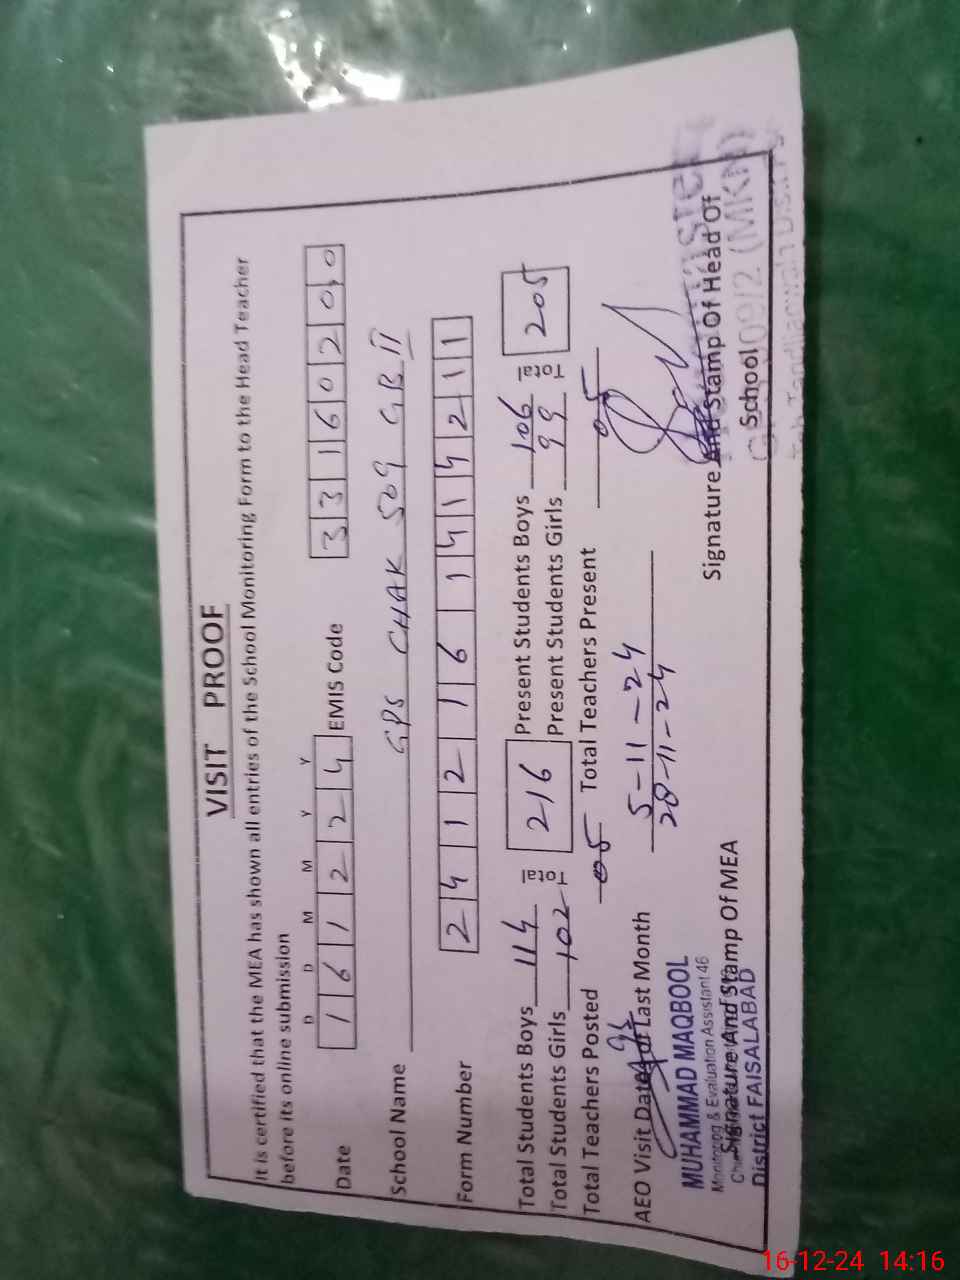 VISIT PROOF
It is certified that the MEA has shown all entries of the School Monitoring Form to the Head Teacher
before its online submission
D D M M Y Y
Date 1 6 1 2 2 4 EMIS Code 3 3 1 6 0 2 0 0
School Name GPS CHAK 509 GB II
Form Number 2 4 1 2 1 6 1 4 1 4 2 1 1
Total Students Boys 114 Total 216 Present Students Boys 106 Total 205
Total Students Girls 102 Present Students Girls 99
Total Teachers Posted 05 Total Teachers Present 05
AEO Visit Date of Last Month 5-11-24
28-11-24
MUHAMMAD MAQBOOL
Monitoring & Evaluation Assistant 46
Signature And Stamp Of MEA
District FAISALABAD
Signature And Stamp Of Head Of
School
09/2 (MKN)
16-12-24 14:16